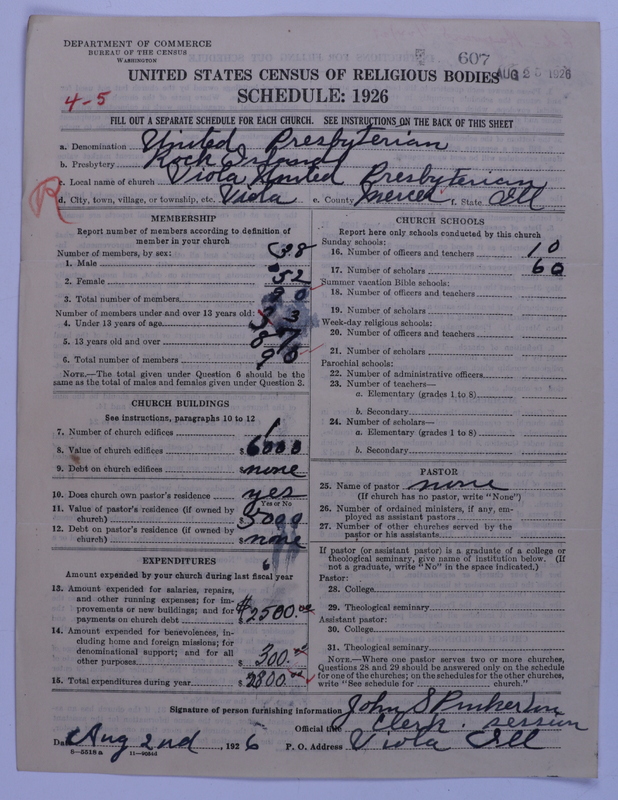 DEPARTMENT OF COMMERCE
BUREAU OF THE CENSUS
WASHINGTON
607
AUG 25 1926
UNITED STATES CENSUS OF RELIGIOUS BODIES
SCHEDULE: 1926
4-5
FILL OUT A SEPARATE SCHEDULE FOR EACH CHURCH. SEE INSTRUCTIONS ON THE BACK OF THIS SHEET
a. Denomination United Presbyterian
b. Presbytery Rock Island
c. Local name of church Viola United Presbyterian
d. City, town, village, or township, etc. Viola e. County Mercer f. State Ill
R
MEMBERSHIP
Report number of members according to definition of member in your church
Number of members, by sex:
1. Male 38
2. Female 52
3. Total number of members 90
Number of members under and over 13 years old:
4. Under 13 years of age 3
5. 13 years old and over 87
6. Total number of members 90
NOTE.—The total given under Question 6 should be the same as the total of males and females given under Question 3.
CHURCH BUILDINGS
See instructions, paragraphs 10 to 12
7. Number of church edifices 1
8. Value of church edifices $ 6000
9. Debt on church edifices $ none
10. Does church own pastor's residence yes
Yes or No
11. Value of pastor's residence (if owned by church) $ 5000
12. Debt on pastor's residence (if owned by church) $ none
EXPENDITURES
Amount expended by your church during last fiscal year
13. Amount expended for salaries, repairs, and other running expenses; for improvements or new buildings; and for payments on church debt $ 2500.00
14. Amount expended for benevolences, including home and foreign missions; for denominational support; and for all other purposes $ 300.00
15. Total expenditures during year $ 2800.00
CHURCH SCHOOLS
Report here only schools conducted by this church
Sunday schools:
16. Number of officers and teachers 10
17. Number of scholars 60
Summer vacation Bible schools:
18. Number of officers and teachers
19. Number of scholars
Week-day religious schools:
20. Number of officers and teachers
21. Number of scholars
Parochial schools:
22. Number of administrative officers
23. Number of teachers—
a. Elementary (grades 1 to 8)
b. Secondary
24. Number of scholars—
a. Elementary (grades 1 to 8)
b. Secondary
PASTOR
25. Name of pastor none
(If church has no pastor, write "None")
26. Number of ordained ministers, if any, employed as assistant pastors
27. Number of other churches served by the pastor or his assistants
If pastor (or assistant pastor) is a graduate of a college or theological seminary, give name of institution below. (If not a graduate, write "No" in the space indicated.)
Pastor:
28. College
29. Theological seminary
Assistant pastor:
30. College
31. Theological seminary
NOTE.—Where one pastor serves two or more churches, Questions 28 and 29 should be answered only on the schedule for one of the churches; on the schedules for the other churches, write "See schedule for church."
Signature of person furnishing information John S Pinkerton
Official title Clerk. Session
Date Aug 2nd, 1926 P. O. Address Viola Ill
8-5518a